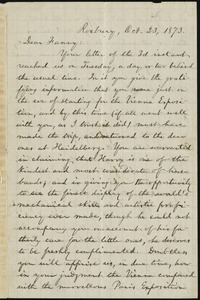 Roxbury, Oct. 23, 1873.
Dear Fanny:
Your letter of the 3d instant
reached us on Tuesday, a day or two behind
the usual time. In it you give the grati-
fying information that you were just on
the eve of starting for the Vienna Exposi-
tion, and by this time (if all went well
with you, as I trust it did) must have
made the trip, and returned to the dear
ones at Heidelberg. You are warranted
in claiming that Harry is one of the
kindest and most considerate of hus-
bands; and in giving you the opportunity
to see the finest display of the world's
mechanical skill and artistic profi-
ciency ever made, though he could not
accompany you on account of his fa-
therly care for the little ones, he deserves
to be greatly complimented. Doubtless
you will apprise us, in due time, how
in your judgment the Vienna compared
with the marvellous Paris Exposition